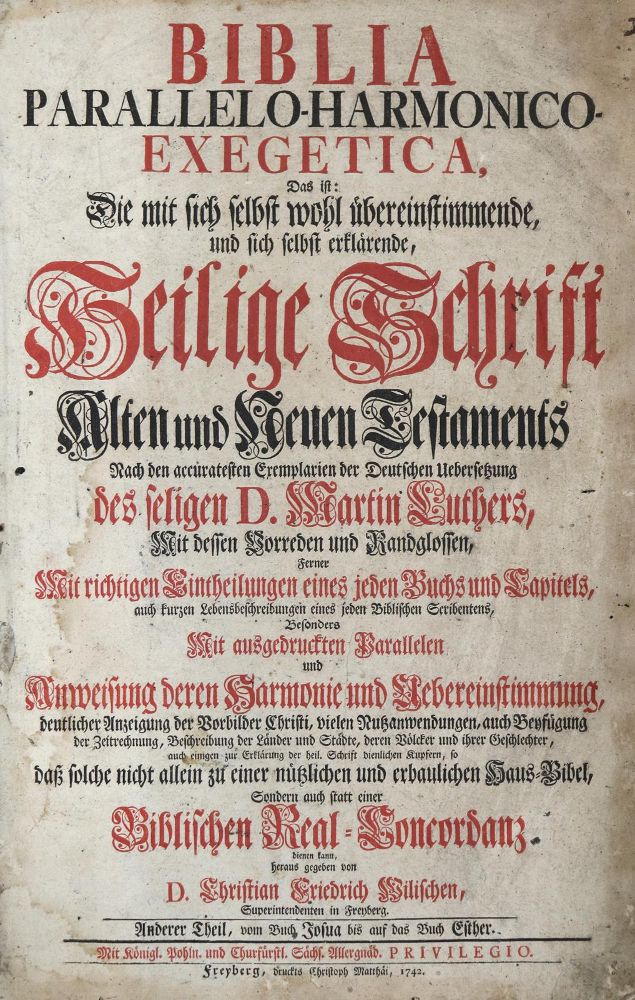 BIBLIA
PARALLELO-HARMONICO-
EXEGETICA,
Das ist:
Die mit sich selbst wohl übereinstimmende,
und sich selbst erklärende,
Heilige Schrift
Alten und Neuen Testaments
Nach den accuratesten Exemplarien der Deutschen Uebersetzung
des seligen D. Martin Luthers,
Mit dessen Vorreden und Randglossen,
Ferner
Mit richtigen Eintheilungen eines jeden Buchs und Capitels,
auch kurzen Lebensbeschreibungen eines jeden Biblischen Scribentens,
Besonders
Mit ausgedruckten Parallelen
und
Anweisung deren Harmonie und Uebereinstimmung,
deutlicher Anzeigung der Vorbilder Christi, vielen Nutzanwendungen, auch Beyfügung
der Zeitrechnung, Beschreibung der Länder und Städte, deren Völcker und ihrer Geschlechter,
auch einigen zur Erklärung der heil. Schrift dienlichen Kupfern, so
daß solche nicht allein zu einer nützlichen und erbaulichen Haus-Bibel,
Sondern auch statt einer
Biblischen Real-Concordanz
dienen kann,
heraus gegeben von
D. Christian Friedrich Wilischen,
Superintendenten in Freyberg.
Anderer Theil, vom Buch Josua bis auf das Buch Esther.
Mit Königl. Pohln. und Churfürstl. Sächs. Allergnäd. PRIVILEGIO.
Freyberg, druckts Christoph Matthäi, 1742.